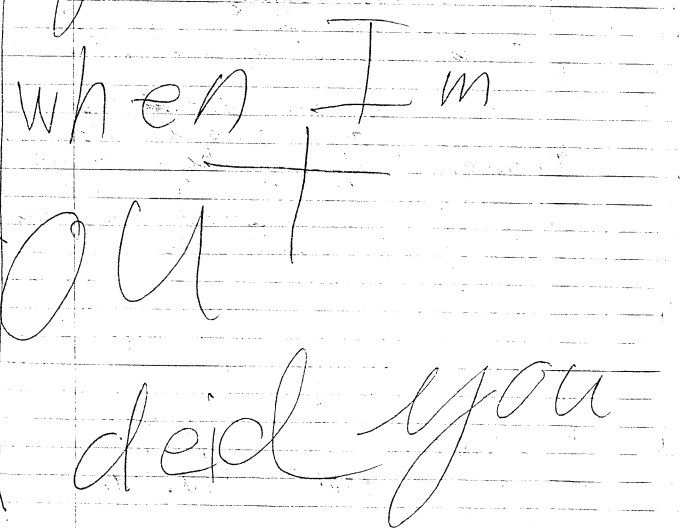 when Im
out
deid you